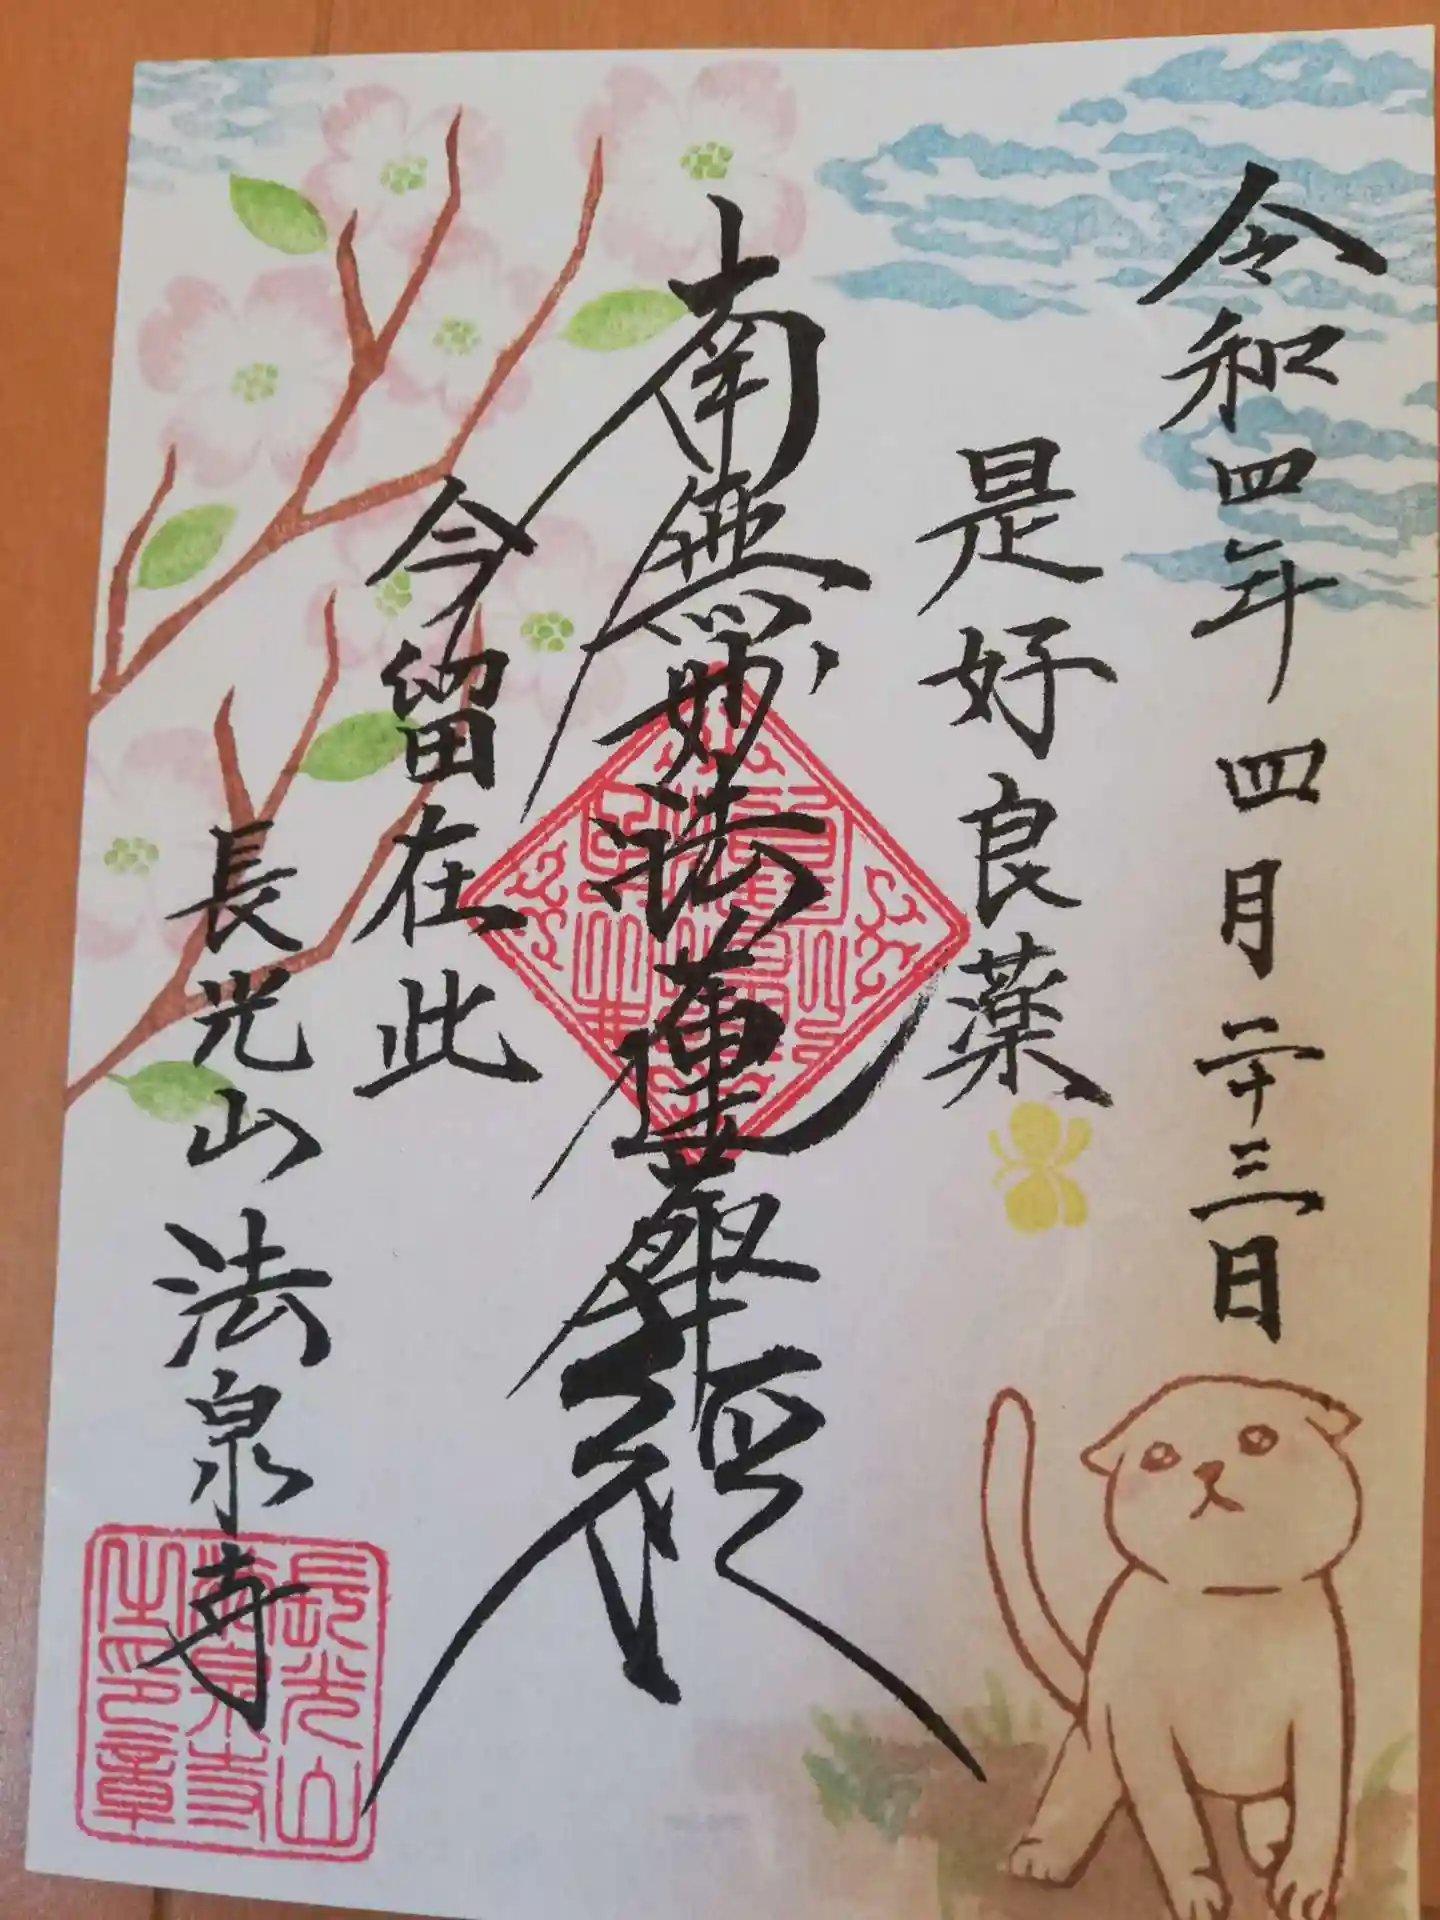 令和四年四月二十三日
是好良薬
南無妙法蓮華経
今留在此
長光山法泉寺
長光山
法泉寺
之印章